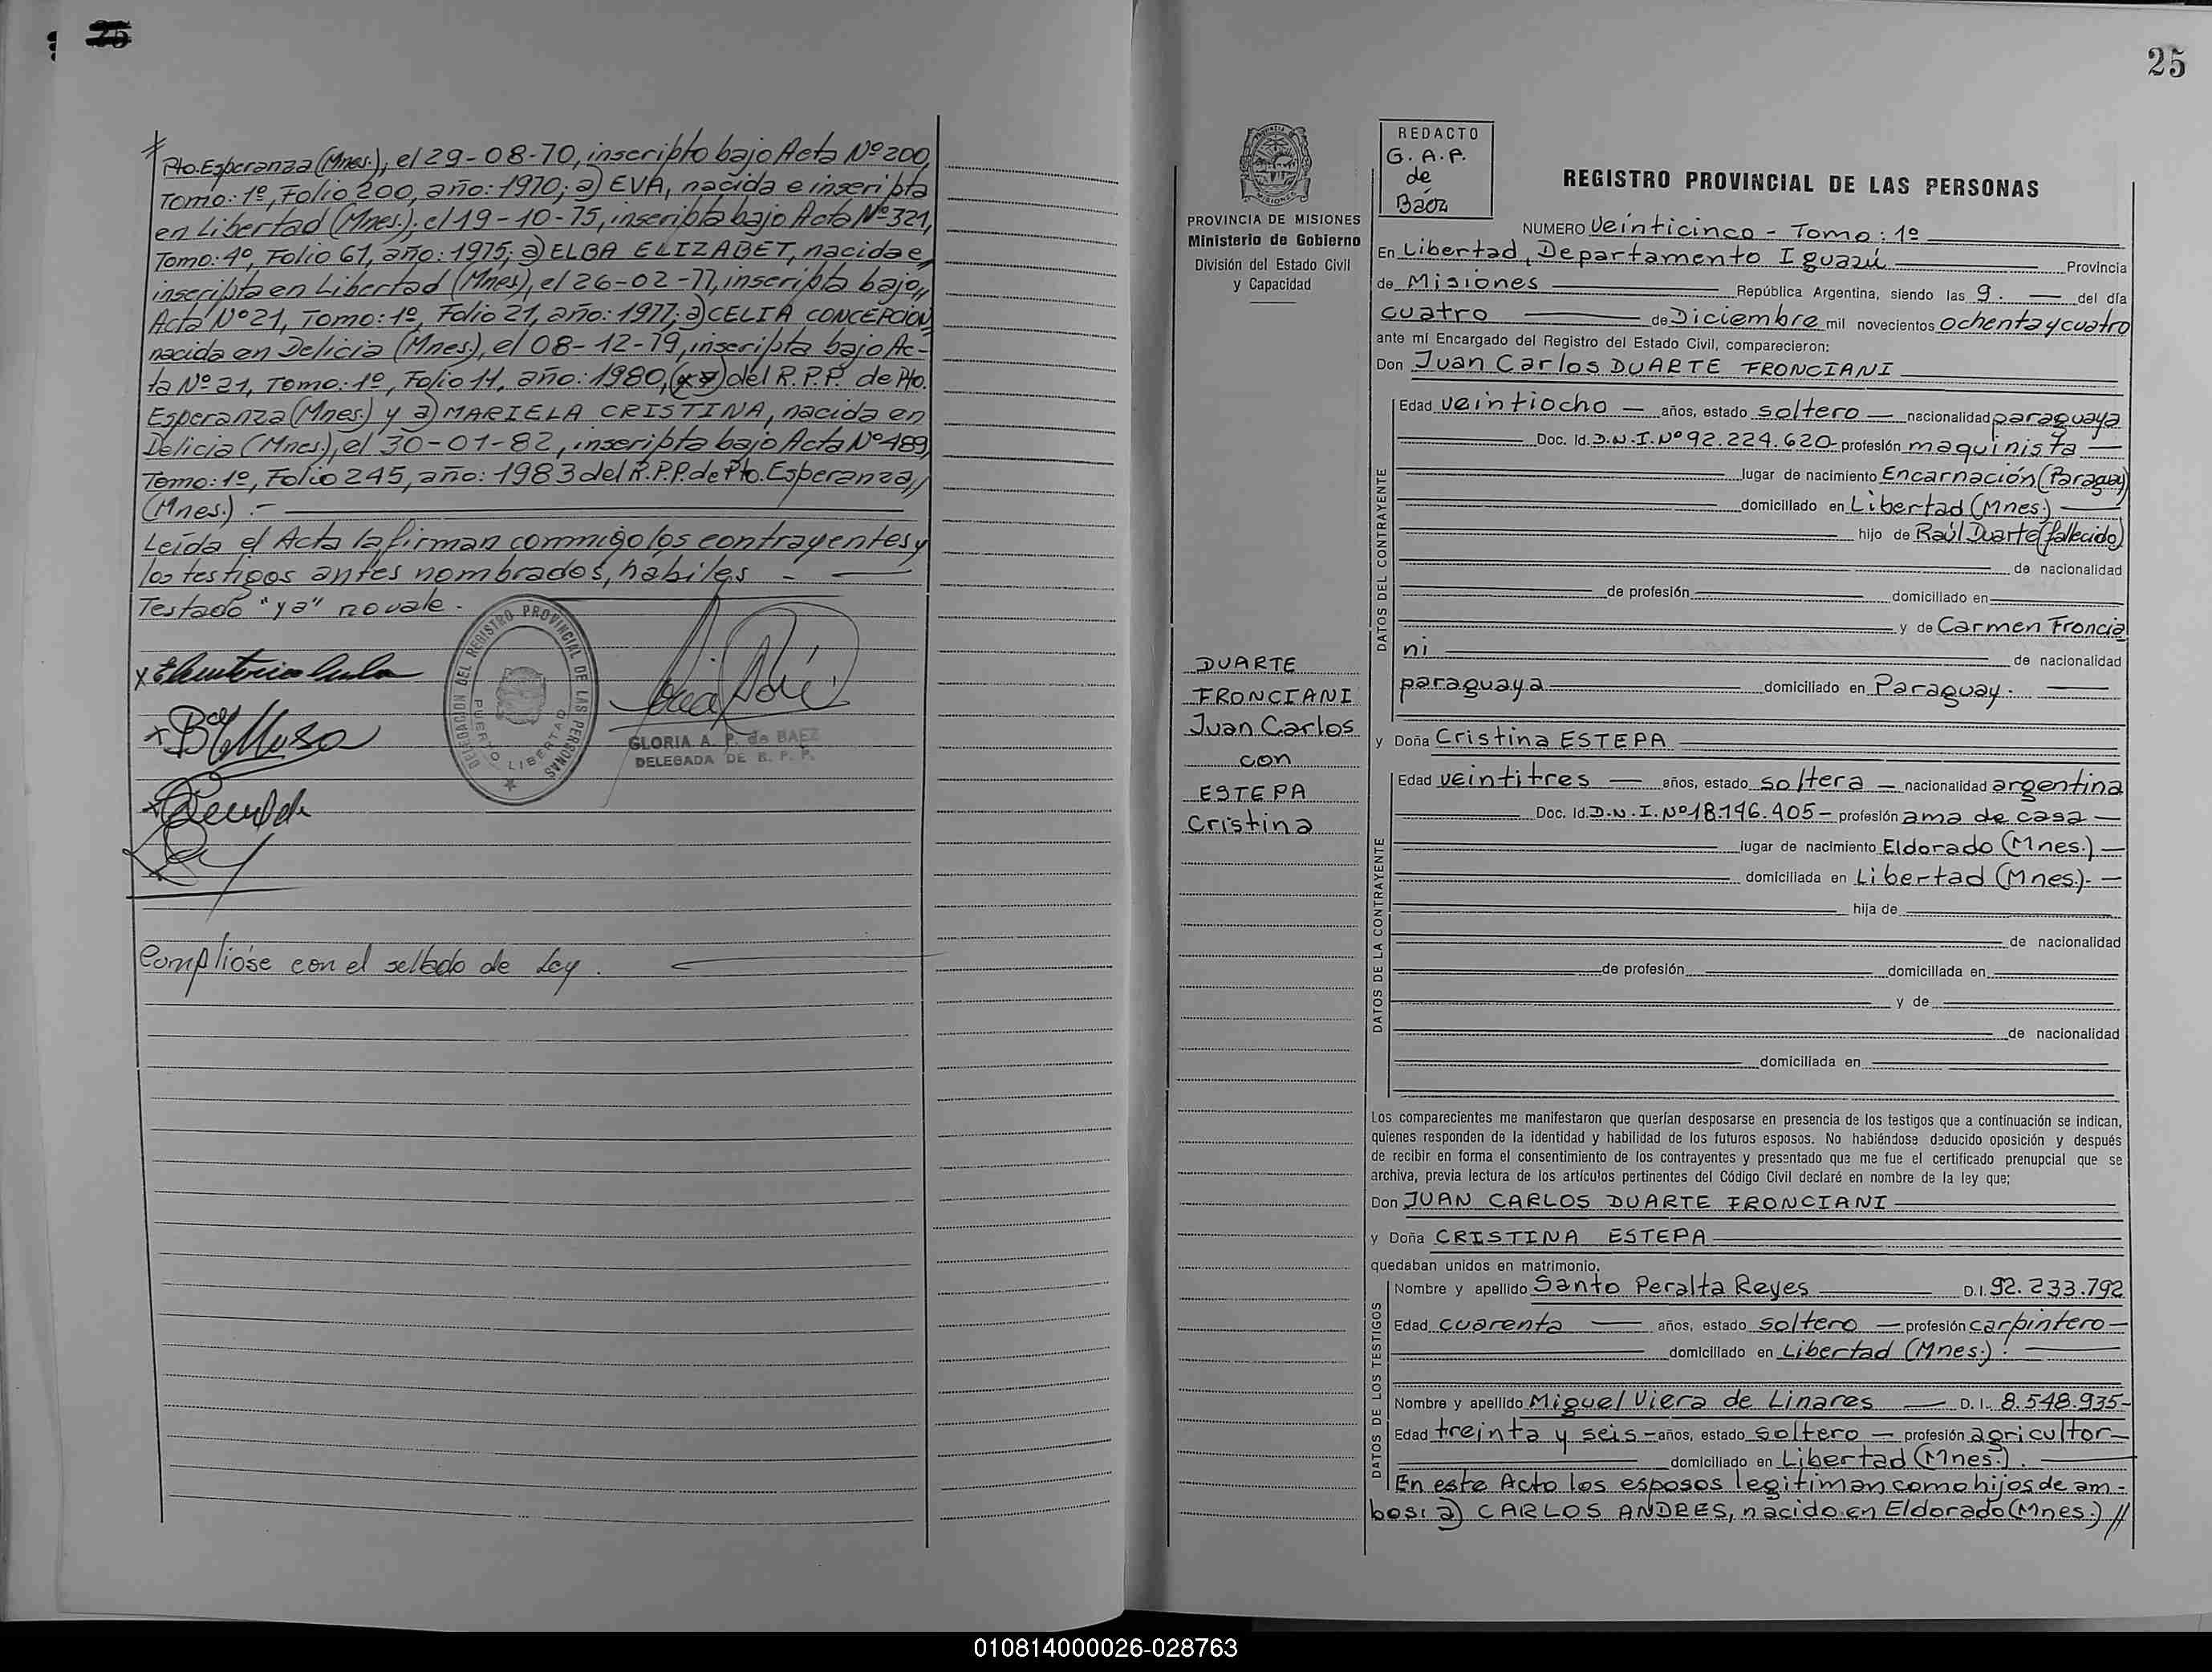 25
Pto. Esperanza (Mnes.), el 29-08-70, inscripto bajo Acta Nº 200,
Tomo: 1º, Folio 200, año: 1970; a) EVA, nacida e inscripta
en Libertad (Mnes.), el 19-10-75, inscripta bajo Acta Nº 321,
Tomo: 4º, Folio 61, año: 1975; a) ELBA ELIZABET, nacida e
inscripta en Libertad (Mnes), el 26-02-77, inscripta bajo
Acta Nº 21, Tomo: 1º, Folio 21, año: 1977; a) CELIA CONCEPCION,
nacida en Delicia (Mnes), el 08-12-79, inscripta bajo Ac-
ta Nº 21, Tomo: 1º, Folio 11, año: 1980, del R.P.P. de Pto.
Esperanza (Mnes.) y a) MARIELA CRISTINA, nacida en
Delicia (Mnes.), el 30-01-82, inscripta bajo Acta Nº 489,
Tomo: 1º, Folio 245, año: 1983 del R.P.P. de Pto. Esperanza,
(Mnes.) .-
Leída el Acta la firman conmigo los contrayentes y
los testigos antes nombrados, habiles -
Testado "ya" no vale.
DELEGACION DEL REGISTRO PROVINCIAL DE LAS PERSONAS
PUERTO LIBERTAD
GLORIA A. P. de BAEZ
DELEGADA DE R. P. P.
Cumplióse con el sellado de Ley.
25
PROVINCIA DE MISIONES
Ministerio de Gobierno
División del Estado Civil
y Capacidad
REDACTO
G. A. P.
de
Báez
REGISTRO PROVINCIAL DE LAS PERSONAS
NUMERO Veinticinco - Tomo: 1º
En Libertad, Departamento Iguazú Provincia
de Misiones República Argentina, siendo las 9. del día
cuatro de Diciembre mil novecientos ochenta y cuatro
ante mí Encargado del Registro del Estado Civil, comparecieron:
Don Juan Carlos DUARTE FRONCIANI
DATOS DEL CONTRAYENTE
Edad veintiocho años, estado soltero nacionalidad paraguaya
Doc. Id. D.N.I. Nº 92.224.620- profesión maquinista
lugar de nacimiento Encarnación (Paraguay)
domiciliado en Libertad (Mnes.)
hijo de Raúl Duarte (fallecido)
de nacionalidad
de profesión domiciliado en
y de Carmen Froncia
ni de nacionalidad
paraguaya domiciliado en Paraguay.
DUARTE
FRONCIANI
Juan Carlos
con
ESTEPA
Cristina
y Doña Cristina ESTEPA
DATOS DE LA CONTRAYENTE
Edad veintitres años, estado soltera nacionalidad argentina
Doc. Id. D.N.I. Nº 18.196.405- profesión ama de casa
lugar de nacimiento Eldorado (Mnes.)
domiciliada en Libertad (Mnes).-
hija de
de nacionalidad
de profesión domiciliada en
y de
de nacionalidad
domiciliada en
Los comparecientes me manifestaron que querían desposarse en presencia de los testigos que a continuación se indican,
quienes responden de la identidad y habilidad de los futuros esposos. No habiéndose deducido oposición y después
de recibir en forma el consentimiento de los contrayentes y presentado que me fue el certificado prenupcial que se
archiva, previa lectura de los artículos pertinentes del Código Civil declaré en nombre de la ley que;
Don JUAN CARLOS DUARTE FRONCIANI
y Doña CRISTINA ESTEPA
quedaban unidos en matrimonio.
DATOS DE LOS TESTIGOS
Nombre y apellido Santo Peralta Reyes D.I. 92.233.792
Edad cuarenta años, estado soltero profesión carpintero
domiciliado en Libertad (Mnes.).
Nombre y apellido Miguel Viera de Linares D.I. 8.548.935-
Edad treinta y seis años, estado soltero profesión agricultor
domiciliado en Libertad (Mnes.).
En este Acto los esposos legitiman como hijos de am-
bos: a) CARLOS ANDRES, nacido en Eldorado (Mnes.) //
010814000026-028763